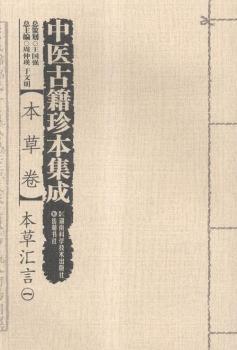 中医古籍珍本集成
总策划○王国强
总主编○周仲瑛 于文明
【本草卷】
本草汇言 一
湖南科学技术出版社
岳麓书社